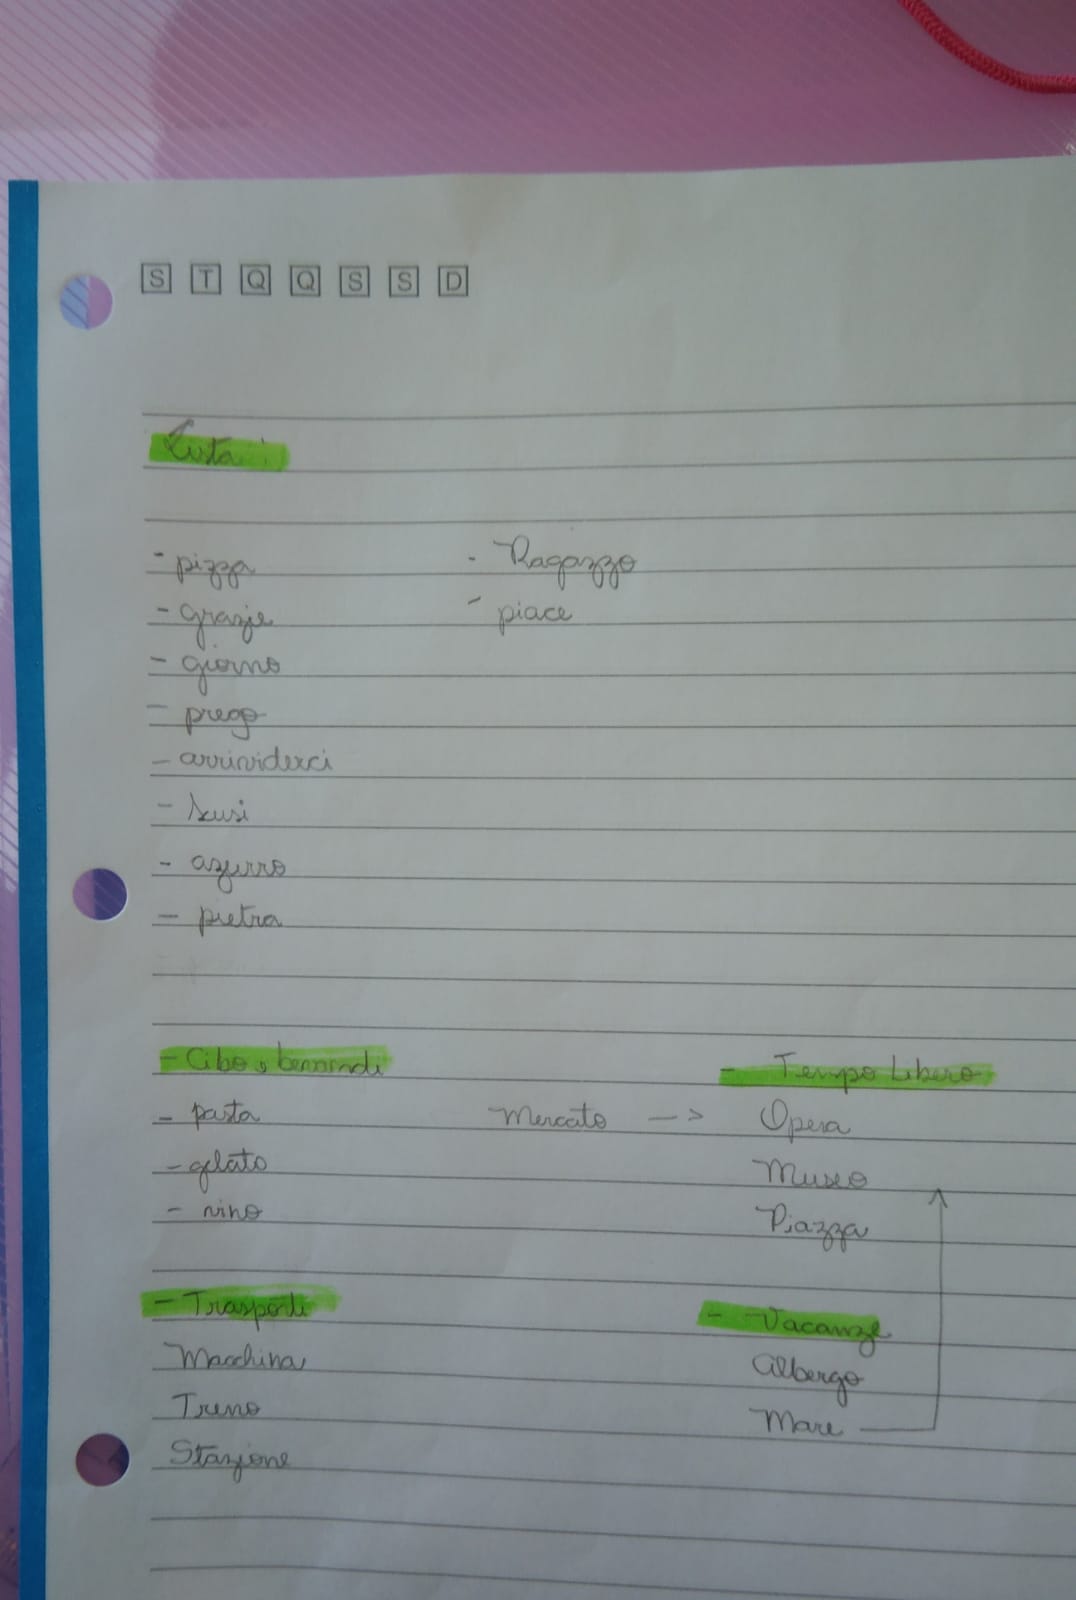 S T Q Q S S D
Lista:
- pizza
- grazie
- giorno
- prego
- arrividerci
- scusi
- azurro
- pietra
- Ragazzo
- piace
- Cibo e bevande
- pasta
- gelato
- vino
Mercato ->
- Tempo Libero
Opera
Museo
Piazza
- Trasporti
Macchina
Treno
Stazione
- Vacanze
Albergo
Mare